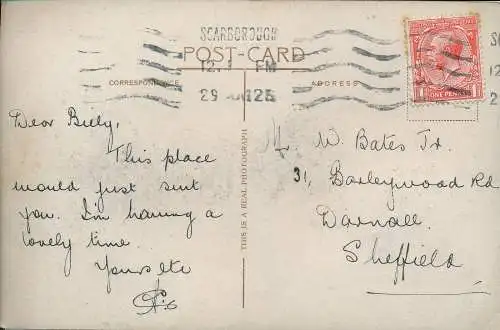 SCARBOROUGH
POST-CARD
12. PM
29 1925
CORRESPONDENCE
ADDRESS
ONE PENNY
Dear Billy,
This place
would just suit
you. I'm having a
lovely time
Yours etc
THIS IS A REAL PHOTOGRAPH
W. Bates Jr.
31, Barleywood Rd
Darnall.
Sheffield